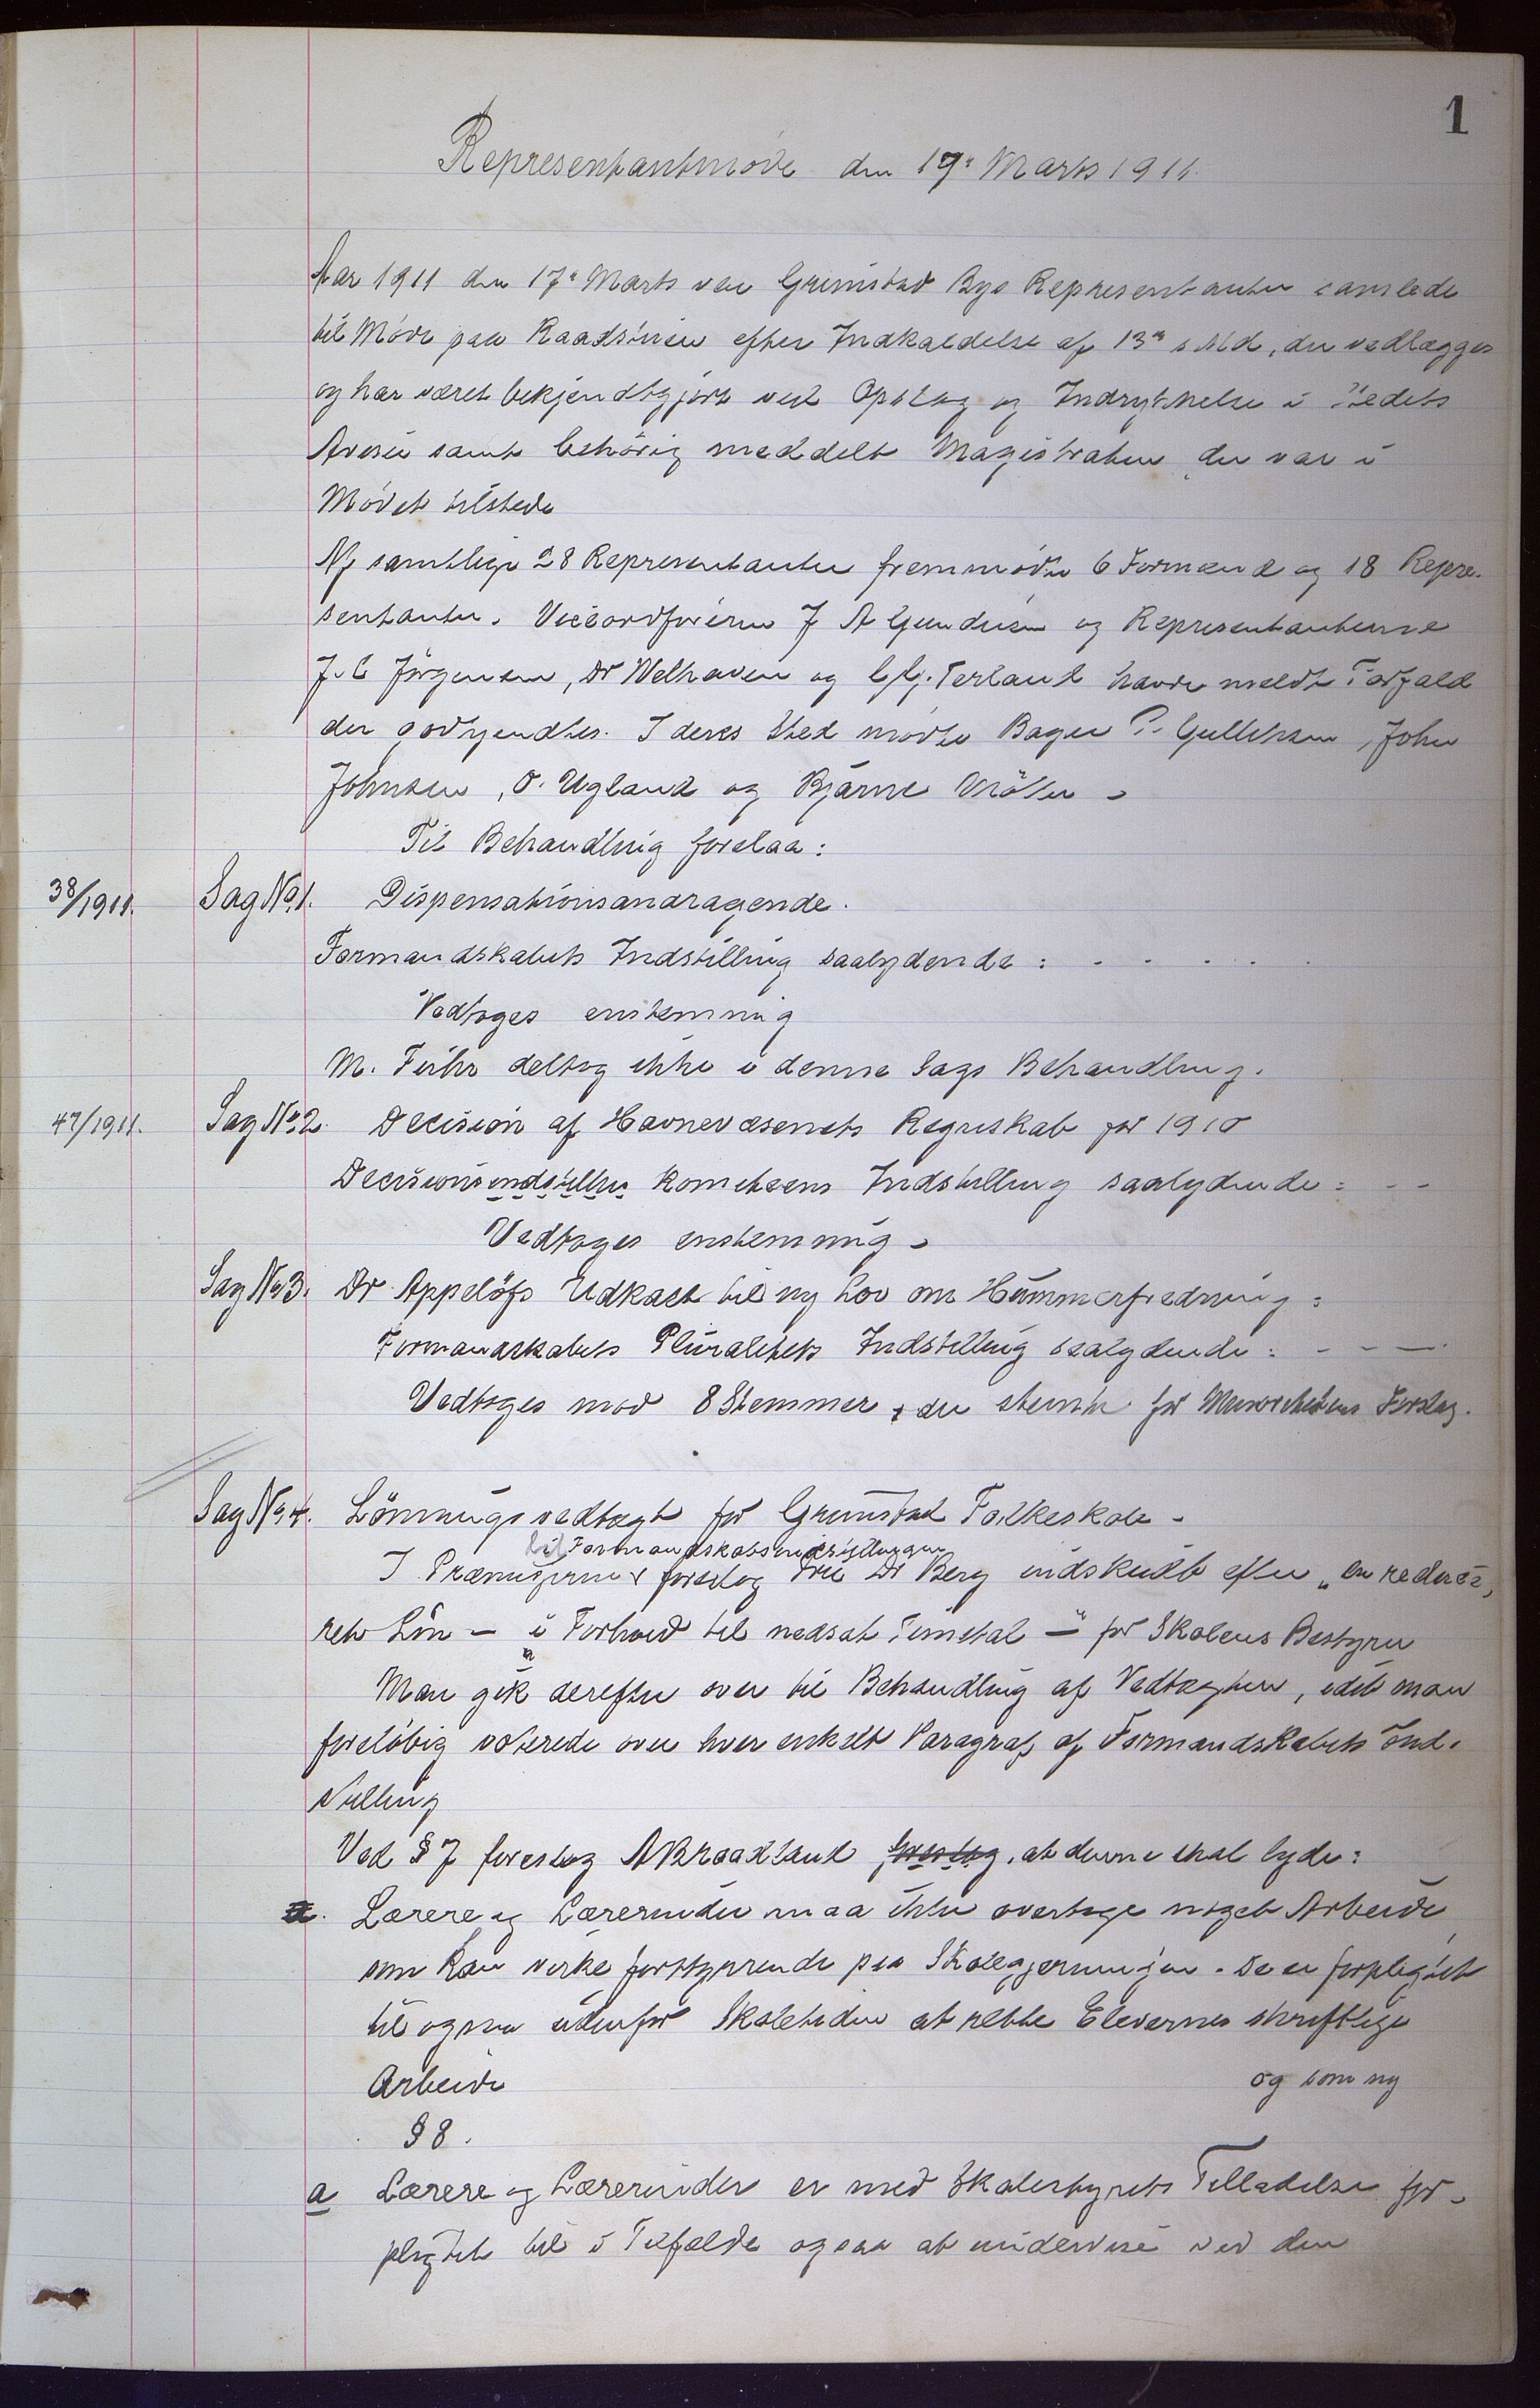 1
Representantmøde den 17de Marts 1911.
Aar 1911 den 17de Marts var Grimstad Bys Representanter samlede
til Møde paa Raadstuen efter Indkaldelse af 13de s Md, der vedlægges
og har været bekjendtgjort ved Opslag og Indrykkelse i Stedets
Aviser samt behørig meddelt Magistraten der var i
Mødet tilstede
Af samtlige 28 Representanter fremmødte 6 Formænd og 18 Repre-
sentanter. Viceordføreren J A Gundersen og Representanterne
J. C Jørgensen, Dr Welhaven og Terland havde meldt Forfald
der godkjendtes. I deres Sted mødte Bager P. Gulliksen, John
Johnsen, O. Ugland og Bjarne Møller -
Til Behandling forelaa:
38/1911. Sag No 1. Dispensationsandragende.
Formandskabets Indstilling saalydende: - - - - -
Vedtoges enstemmig
M. Fuhr deltog ikke i denne Sags Behandling.
47/1911. Sag No 2. Decision af Havnevæsenets Regnskab for 1910
Decisionsindstillin Komiteens Indstilling saalydende: - -
Vedtoges enstemmig -
Sag No 3. Dr Appeløfs Udkast til ny Lov om Hummerfredning:
Formandskabets Pluralitets Indstilling saalydende: - - -
Vedtoges mod 8 Stemmer, der stemte for Minoritetens Forslag.
Sag No 4. Lønningsvedtægt for Grimstad Folkeskole -
til Formandskabsindstillingen
I Præmisserne foreslog Frk Dr Berg indskudt efter "en reduce-
ret Løn - "i Forhold til nedsat Timetal -" for Skolens Bestyrer
Man gik derefter over til Behandling af Vedtægten, idet man
foreløbig voterede over hver enkelt Paragraf af Formandskabets Ind-
stilling
Ved § 7 foreslog A Kraadland foreslog, at denne skal lyde:
a. Lærere og Lærerinder maa ikke overtage noget Arbeide,
som kan virke forstyrrende paa Skolegjerningen. De er forpligtet
til ogsaa udenfor Skoletiden at rette Elevernes skriftlige
Arbeide og som ny
§ 8.
a Lærere og Lærerinder er med Skolestyrets Tilladelse for-
pligtet til i Tilfælde ogsaa at undervise ved den